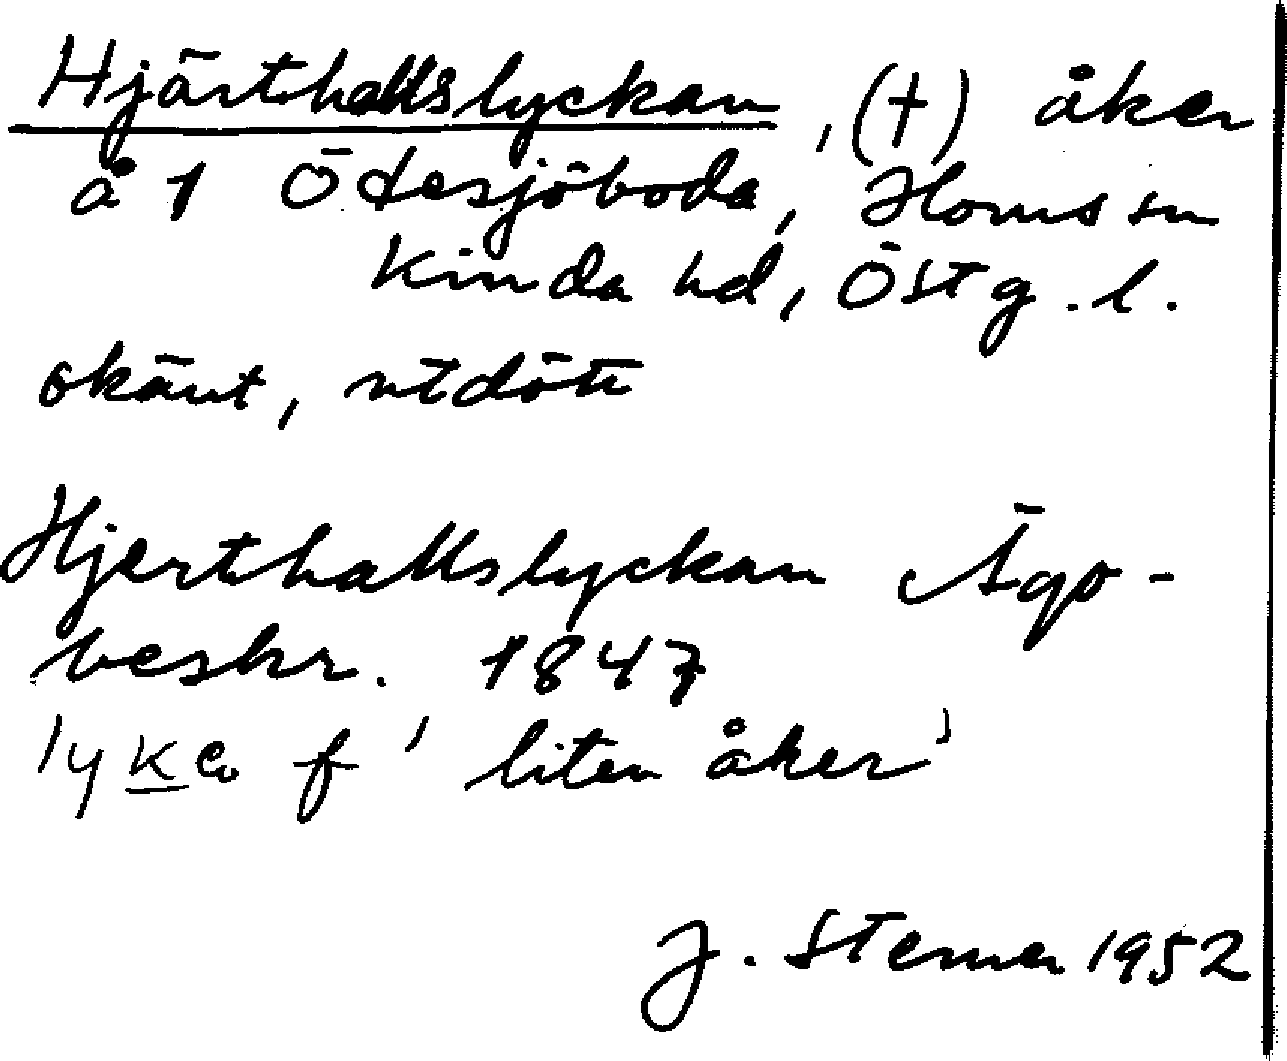 Hjärthallslyckan, (†) åker
å 1 Ödesjöboda, Horns sn
Kinda hd, Östg. l.
okänt, utdött
Hjerthallslyckan Ägo-
beskr. 1847
lyka f 'liten åker'
J. Sterner 1952